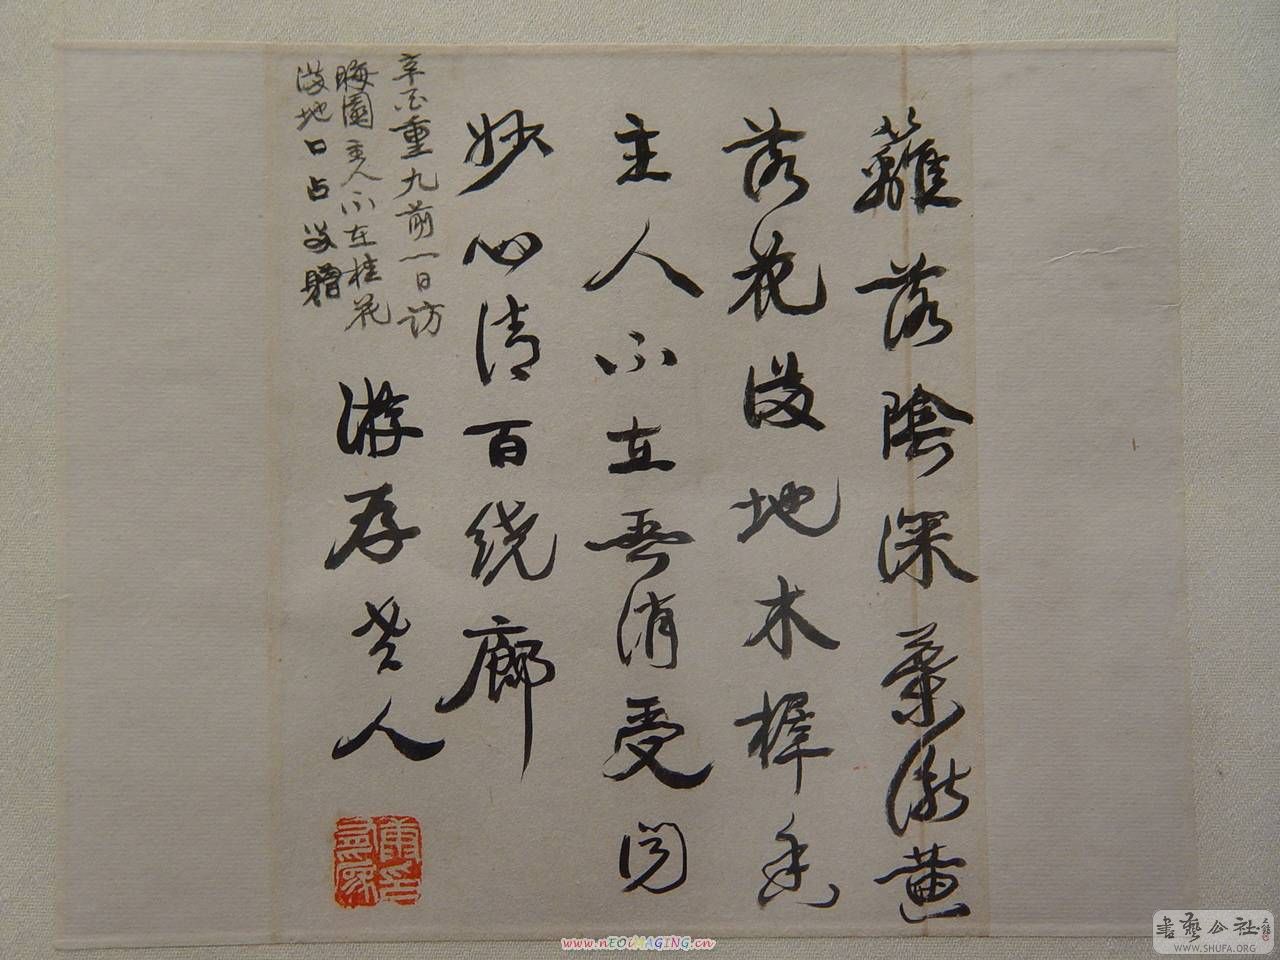 籬落陰深葉漸黃
落花滿地木樨香
主人不在吾消受聞
妙心清百绕廊
辛酉重九前一日訪
晦園主人不在桂花
滿地口占 贈
游存老人
康有為印
www.nEOiMAGING.cn
書藝公社
WWW.SHUFA.ORG